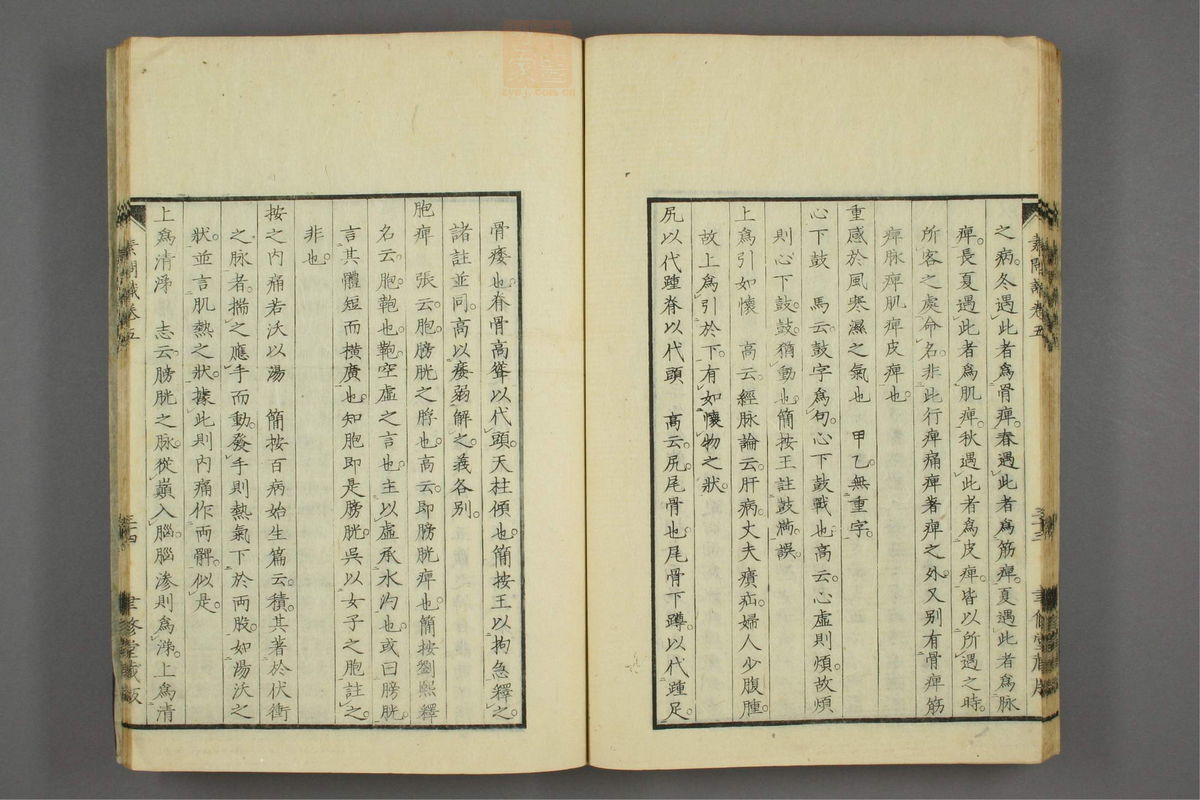 之病。冬遇此者爲骨痺。春遇此者爲筋痺。夏遇此者爲脉
痺。長夏遇此者爲肌痺。秋遇此者爲皮痺。皆以所遇之時
所客之處命名。非此行痺痛痺著痺之外又别有骨痺筋
痺脉痺肌痺皮痺也。
重感於風寒濕之氣也 甲乙無重字。
心下鼓 馬云。鼓字爲句。心下鼓戰也。高云。心虛則煩。故煩
則心下鼓。鼓猶動也。簡按王註鼓滿。誤。
上爲引如懷 高云。經脉論云。肝病。丈夫㿉疝。婦人少腹腫。
故上爲引於下。有如懷物之狀。
尻以代踵脊以代頭 高云。尻。尾骨也。尾骨下蹲。以代踵。足
骨痿也。脊骨高聳。以代頭。天柱傾也。簡按王以拘急釋之。
諸註並同。高以痿弱解之。義各别。
胞痺 張云。胞。膀胱之脬也。高云。即膀胱痺也。簡按劉熙釋
名云。胞。鞄也。鞄。空虛之言也。主以虛承水汋也。或曰膀胱。
言其體短而横廣也。知胞即是膀胱。吳以女子之胞註之。
非也。
按之内痛若沃以湯 簡按百病始生篇云。積其著於伏衝
之脉者。揣之應手而動。發手則熱氣下於兩股。如湯沃之
狀。並言肌熱之狀。據此則内痛作兩髀。似是。
上爲清涕 志云。膀胱之脉。從巔入腦。腦滲則爲涕。上爲清
素問識卷五
三十四
聿修堂藏版